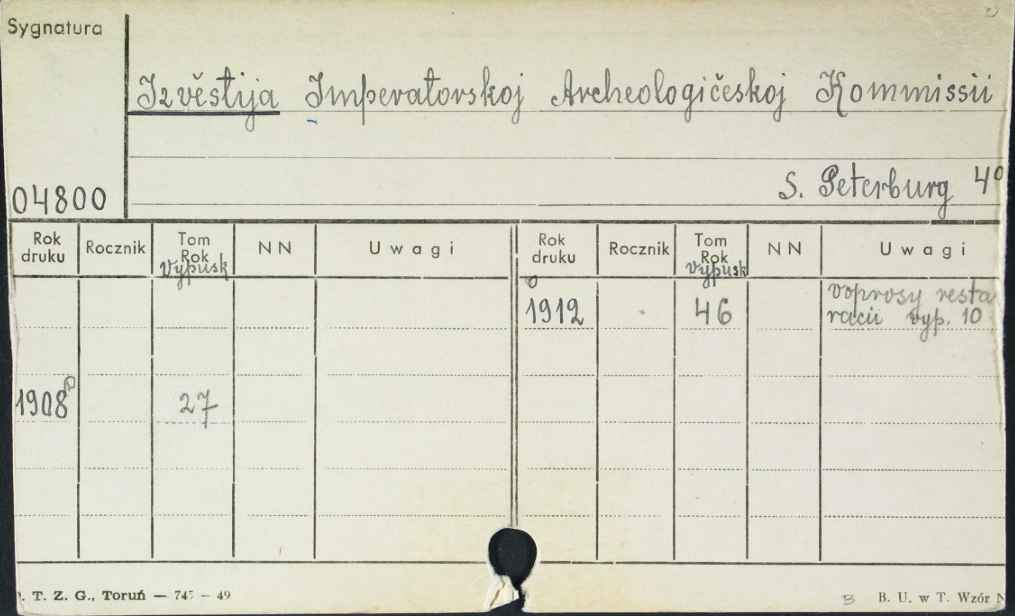 Sygnatura
Izvěstija Imperatorskoj Archeologičeskoj Kommissii
04800
S. Peterburg 4º
Rok druku Rocznik Tom Rok Vypusk NN Uwagi Rok druku Rocznik Tom Rok Vypusk NN Uwagi
1912 46 voprosy resta
racii vyp. 10
1908 27
T. Z. G., Toruń — 745 — 49
B. U. w T. Wzór